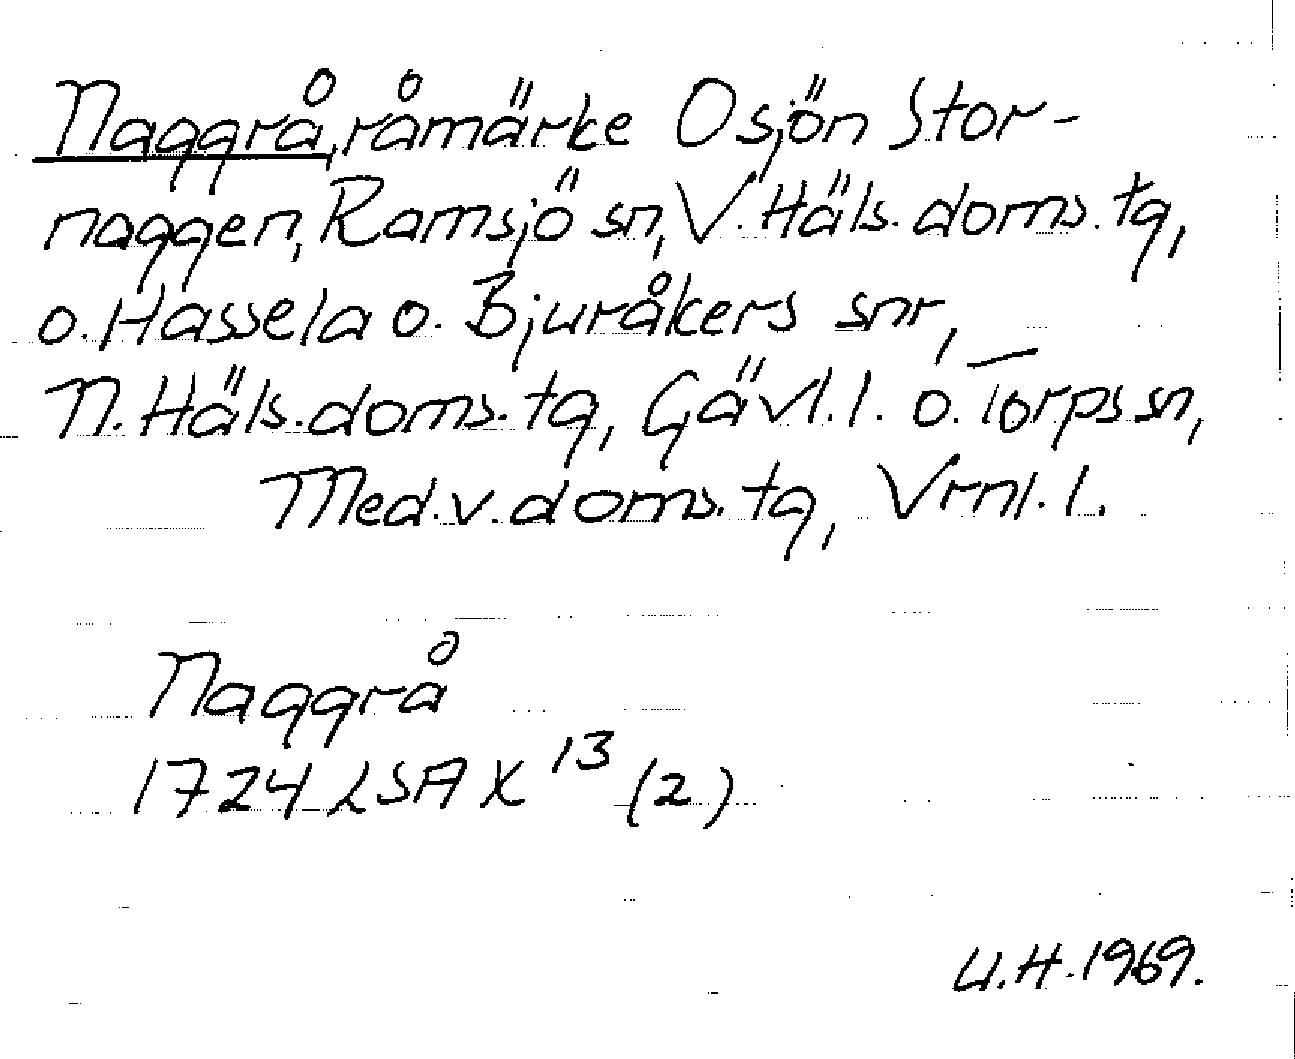 Naggrå, råmärke Osjön Stor-
naggen, Ramsjö sn, V. Häls. doms. tg,
o. Hassela o. Bjuråkers snr,
N. Häls. doms. tg, Gävl. l. o. Torps sn,
Med. v. doms. tg, Vrnl. l.
Naggrå
1724 LSA X 13 (2)
U.H. 1969.